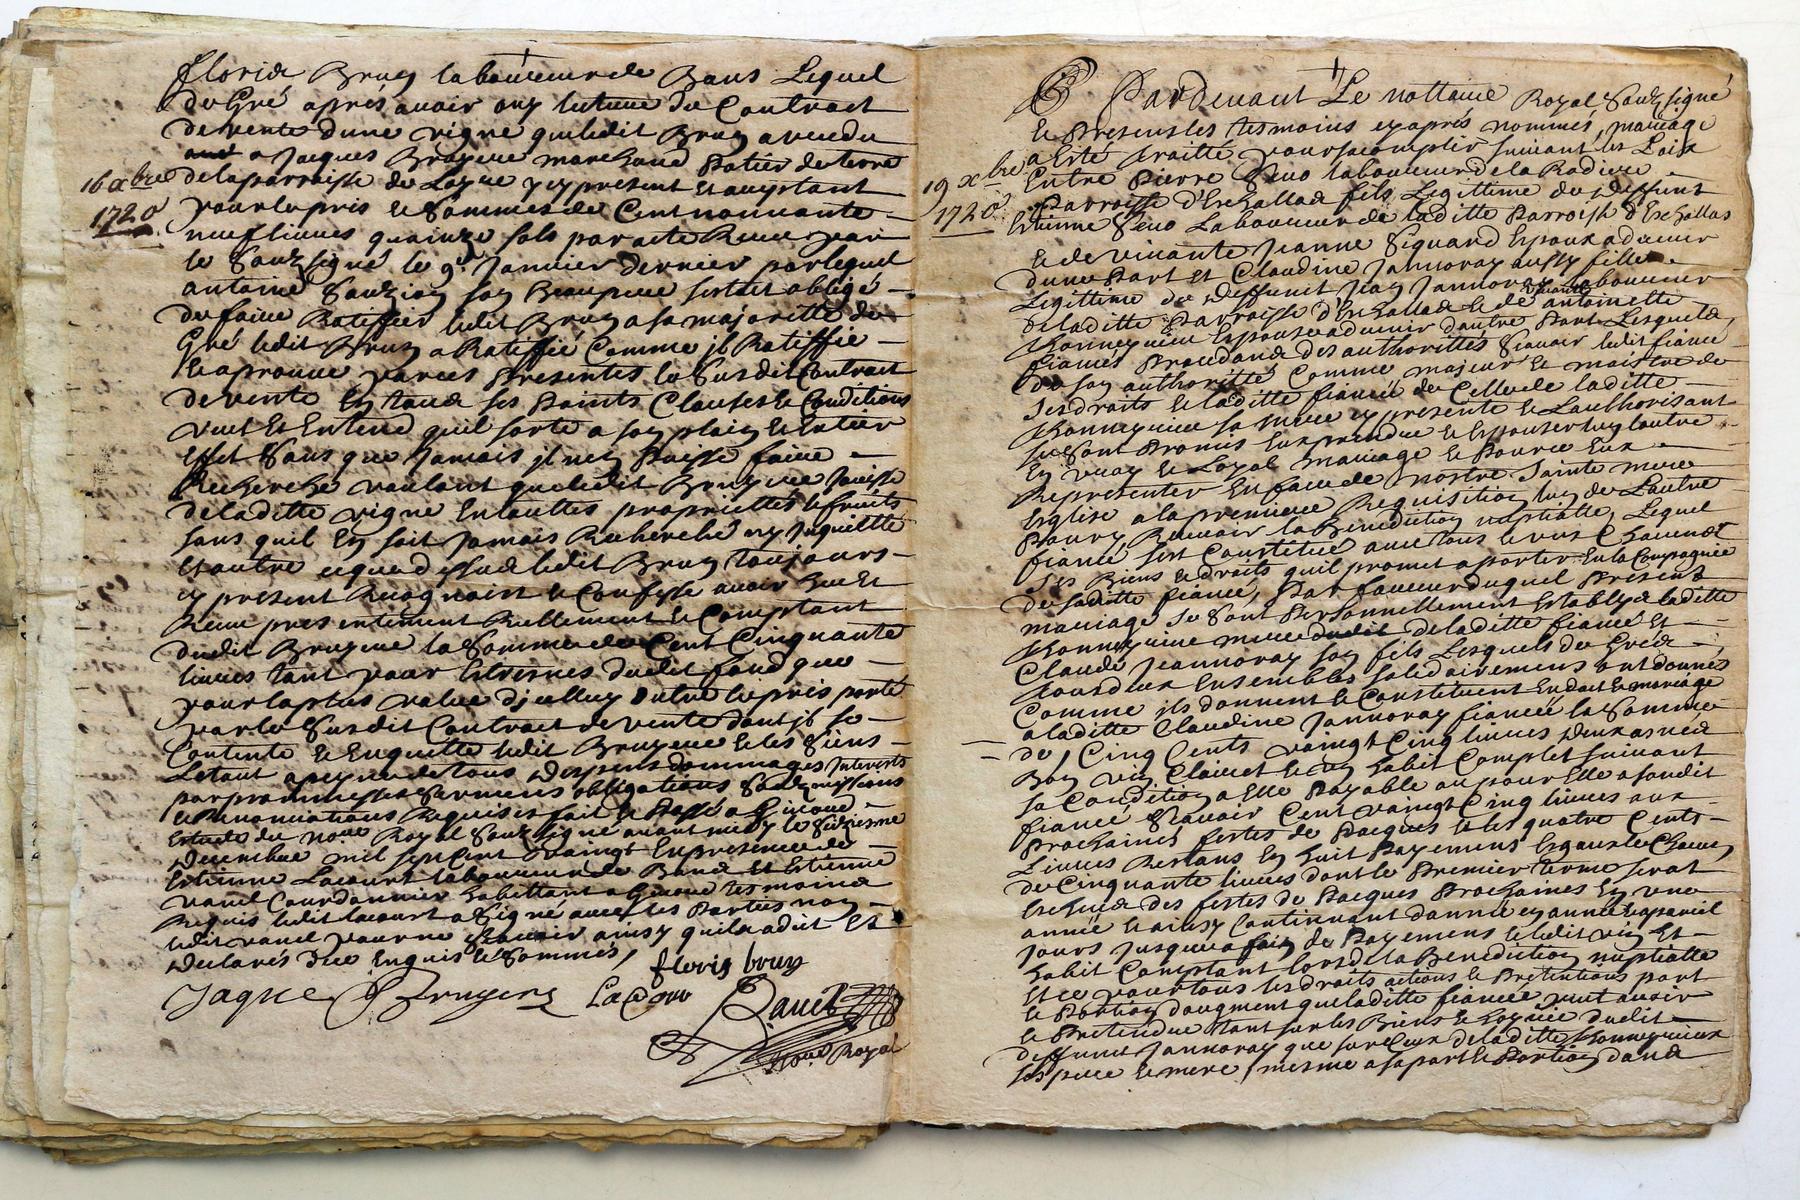 florid Bruy laboureur de Bans Lequel
de Gré aprés avoir ouy lecture du Contract
de vente dune vigne quiledit Bruy a vendu
a Jacques Bruyere marchand Potier de terre
16 xbre
1720
de la parroisse de Loyre y cy present et aceptant
pour le pris et Somme de Cent nonnante
neuf livres quinze sols par acte Receu par
le Soubzsigné le 9e Janvier dernier par lequel
antoine son Beaupere sestoit obligé
de faire Ratiffier ledit Bruy a sa majoritté de
Gré ledit Bruy a Ratiffié Comme il Ratiffie
et aprouve par ces Presentes le Susdit Contract
de vente en tous ses Points Clauses et Conditions
veut et Entend quil sorte a son plain et Entier
effet Sans que Jamais il ny Puisse faire
Recherche voulant que ledit Bruyere Jouisse
de laditte vigne en touttes proprietés et fruits
sans quil en soit Jamais Recherché ny Inquietté
et outre ce que dessus ledit Bruy toujours
cy present Recognoist et Confesse avoir heu et
Receu presentement Reellement et Comptant
dudit Bruyere la Somme de Cent Cinquante
livres tant pour Estresnes dudit fond que
pour la plus value dicelluy outre le pris porté
par le Susdit Contract de vente dont il se
Contente et Enquitte ledit Bruyere et les Siens
Letout a peyne de tous despens dommages Interests
par prommesses Sermens obligations Soubzmissions
et Renonciations Requises fait et Passé a Givord
Estude du nore Royal Soubzsigné avant midy le Seiziesme
decembre mil sept Cent vaingt En presence de
Estienne Lacourt laboureur de Bans et Estienne
Courdonnier habittant a Givord tesmoins
Requis ledit Lacourt a Signé avec les Parties non
ledit pour ne Scavoir ainsy quil a dit et
declarés deue Enquis et Sommés,
floris bruy
Jaque Bruyere Lacour
nore Royal
Pardevant Le nottaire Royal Soubzsigné
et Presens les tesmoins cy aprés nommés, mariage
19 xbre
1720
a Esté traitté pour sacomplir suivant les Loix
Entre Pierre Seno laboureur de la Rodiere
Parroisse d'Eschallas fils Legittime du deffunt
Estienne Seno Laboureur de laditte Parroisse d'Eschallas
et de vivante Jeanne Siquard Espoux advenir
dune Part et Claudine Jannoray aussy fille
Legittime du deffunct Jean Jannoray laboureur
de laditte Parroisse d'Eschallas et de vivante antoinette
Thonnerieux Espouse advenir dautre Part Lesquels
fiancés Procedans des authorittés Scavoir ledit fiancé
de son authoritté Comme majeur et maistre de
ses droits et laditte fiancée de Celle de laditte
Thonnerieux sa mere cy presente et Lauthorisant
se sont Promis Eux prendre et Espouser lung lautre
En vray et Loyal mariage et Pource Eux
Representer En face de nostre Sainte mere
Eglise a la premiere Requisition lung de Lautre
Pour y Recevoir la Benediction nuptialle, Lequel
fiancé sest Constitué avec tous et uns Chacuns
ses Biens et droits quil promet aporter En la Compagnie
de laditte fiancée, Par faveur duquel Present
mariage se sont Personnellement Establys laditte
Thonnerieux mere de laditte fiancée et
Claude Jeannoray son fils Lesquels de Gré
tous deux Ensembles solidairement ont donnés
Comme ils donnent et Constituent En dot et mariage
a laditte Claudine Jannoray fiancée la Somme
de, Cinq Cents vaingt Cinq livres deux asnées
Bon vin Clairet et un habit Complet suivant
sa Condition a Elle Payable ou pour Elle a sondit
fiancé Scavoir Cent vaingt Cinq livres aux
Prochaines festes de Pacques et les quatre Cents
Livres Restans En huit Payemens Esgaux et Chacun
de Cinquante livres dont le Premier terme serat
Escheu des festes de Pacques Prochaines En une
année et ainsy Continuant dannée en année a pareil
Jours Jusques a fain de Payemens et ledit vin et
habit Comptant lors de la Benediction nuptialle
Et ce pour tous les droits actions et Pretentions part
et Portion daugment que laditte fiancée peut avoir
et Pretendre tant sur les Biens et hoyrie dudit
deffunt Jannoray que sur Ceux de laditte Thonnerieux
ses pere et mere mesme a sa part et Portion dans